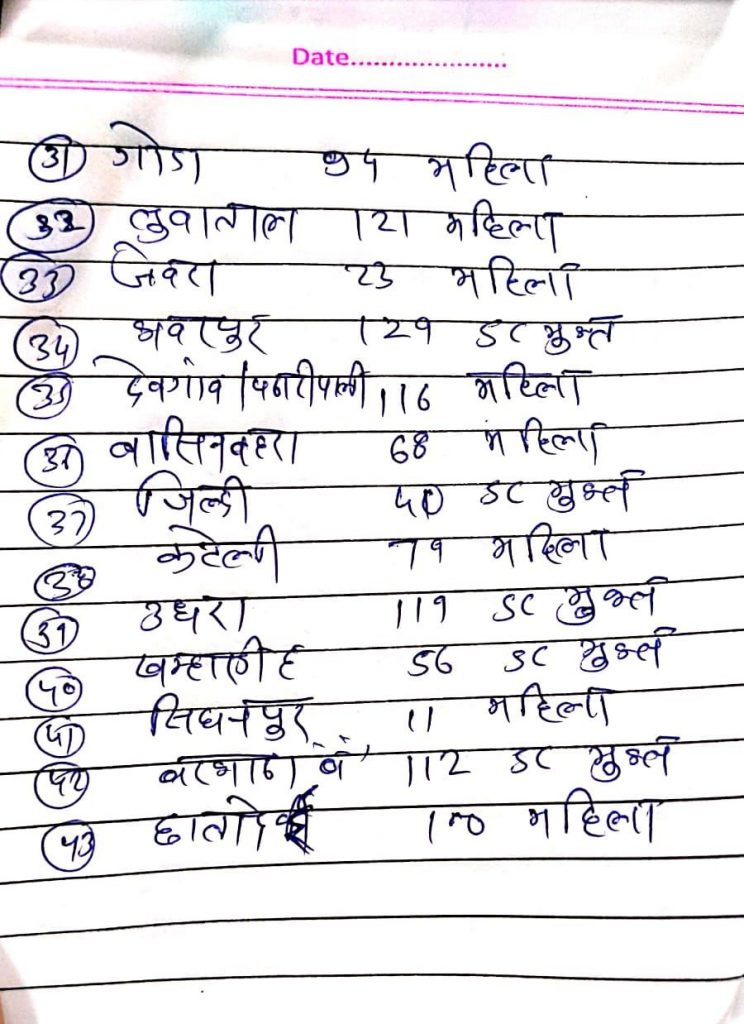 Date....................
31 गोडा 94 महिला
32 लुवाताल 121 महिला
33 जेवरा 23 महिला
34 भवरपुर 129 SC मुक्त
35 देवगांव / पनारीपाली 116 महिला
36 बासिनबहरा 68 महिला
37 जिल्दी 40 SC मुक्त
38 कटेली 79 महिला
39 उधरा 119 SC मुक्त
40 खम्हारडीह 56 SC मुक्त
41 सिघनपुर 11 महिला
42 बरभाठा बं 112 SC मुक्त
43 छातादेई महिला